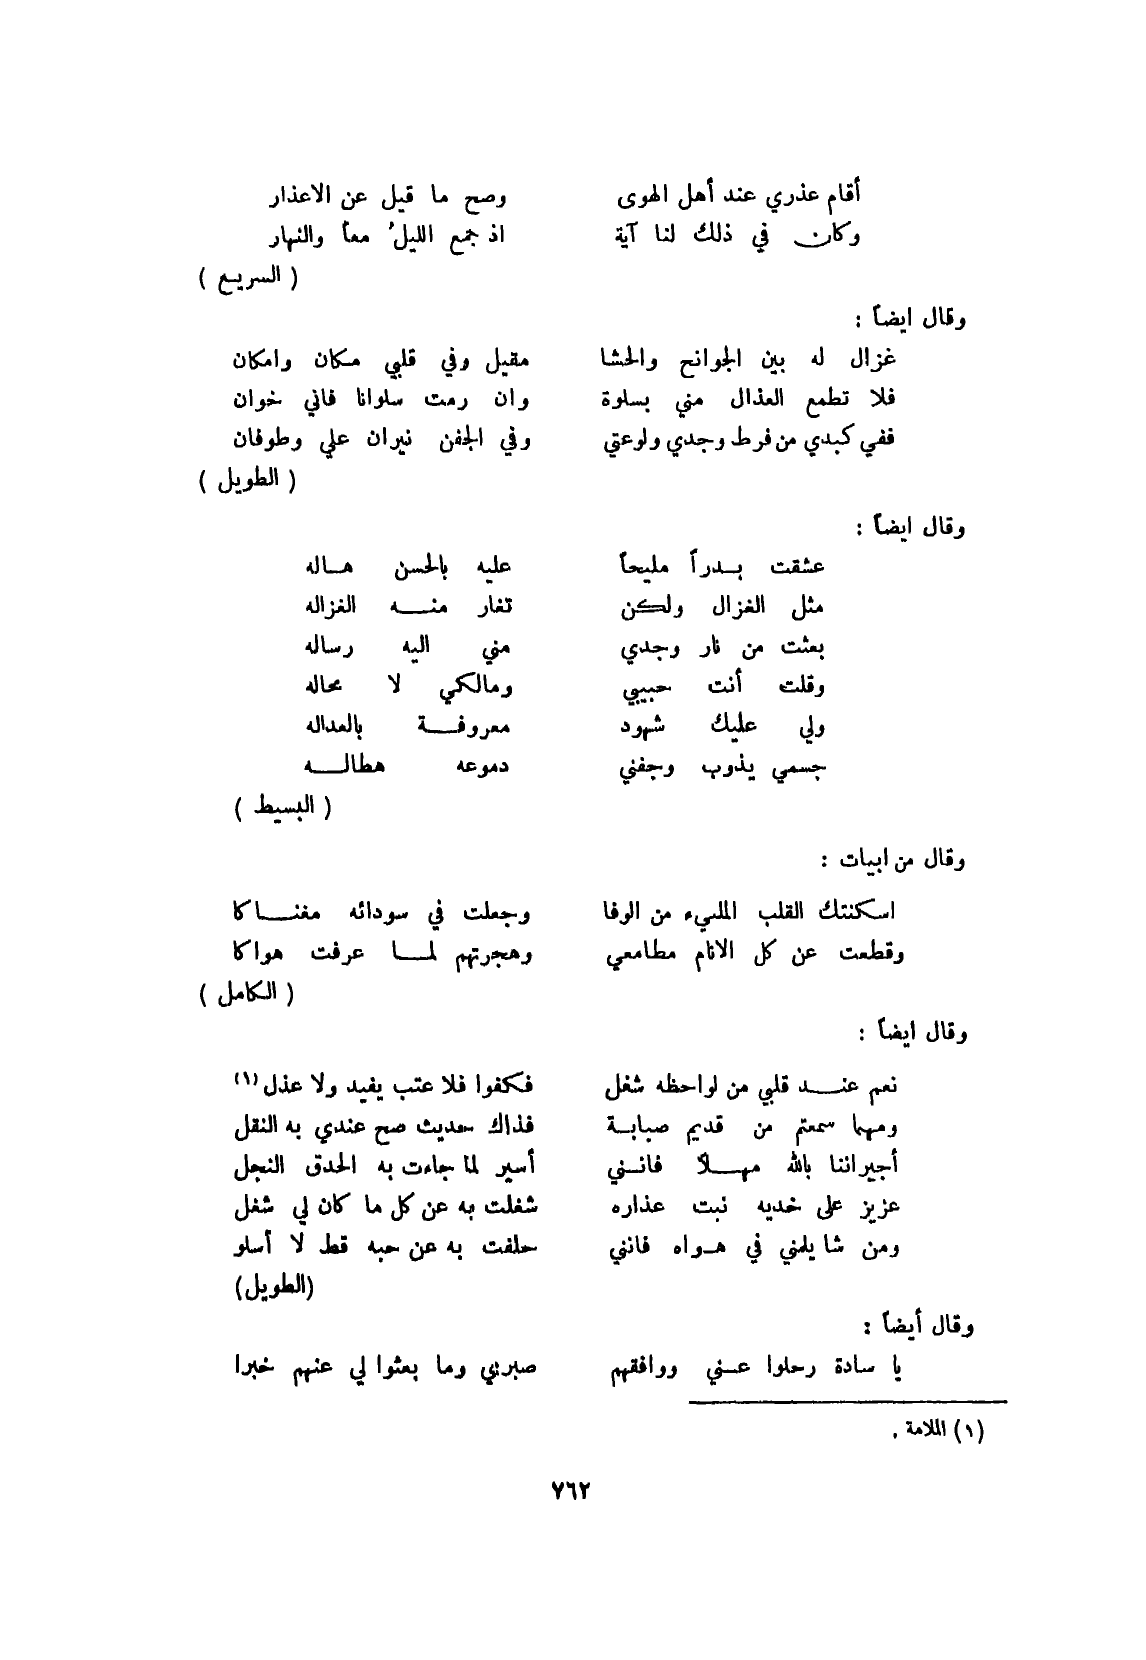 أقام عذري عند أهل الهوى وصح ما قيل عن الاعذار
وكان في ذلك لنا آية اذ جمع الليلُ معاً والنهار
( السريع )
وقال ايضاً :
غزال له بين الجوانح والحشا مقيل وفي قلبي مكان وامكان
فلا تطمع العذال مني بسلوة وان رمت سلوانا فاني خوان
ففي كبدي من فرط وجدي ولوعتي وفي الجفن نيران علي وطوفان
( الطويل )
وقال ايضاً :
عشقت بدراً مليحاً عليه بالحسن هاله
مثل الغزال ولكن تغار منه الغزاله
بعثت من نار وجدي مني اليه رساله
وقلت أنت حبيبي ومالكي لا محاله
ولي عليك شهود معروفة بالعداله
جسمي يذوب وجفني دموعه هطاله
( البسيط )
وقال من ابيات :
اسكنتك القلب المليء من الوفا وجعلت في سودائه مغناكا
وقطعت عن كل الانام مطامعي وهجرتهم لما عرفت هواكا
( الكامل )
وقال ايضاً :
نعم عند قلبي من لواحظه شغل فكفوا فلا عتب يفيد ولا عذل (١)
ومهما سمعتم من قديم صبابة فذاك حديث صح عندي به النقل
أجيراننا بالله مهلاً فانني أسير لما جاءت به الحدق النجل
عزيز على خديه نبت عذاره شغلت به عن كل ما كان لي شغل
ومن شا يلمني في هواه فانني حلفت به عن حبه قط لا أسلو
(الطويل)
وقال أيضاً :
يا سادة رحلوا عني ووافقهم صبري وما بعثوا لي عنهم خبرا
(١) الملامة .
٧٦٢